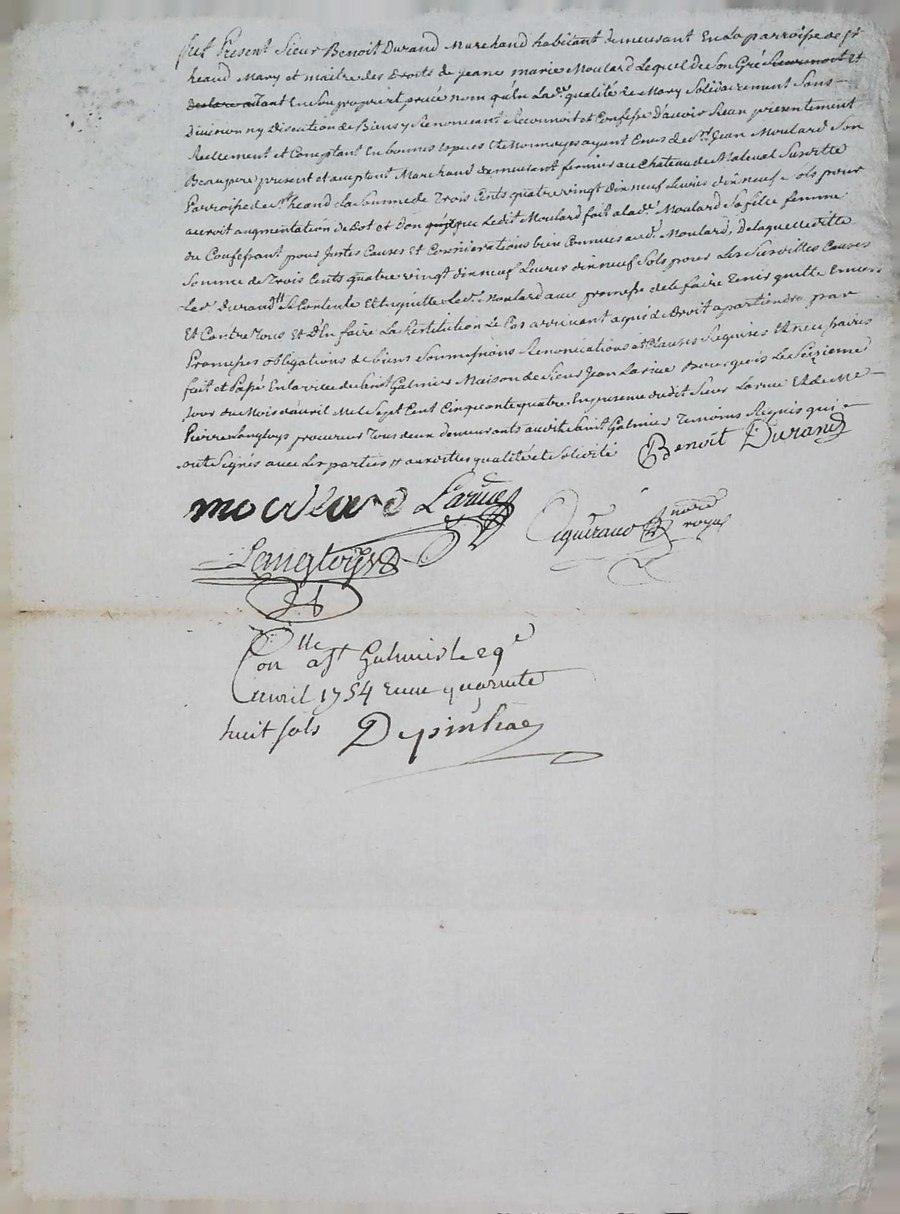 fut Present Sieur Benoit Durand Marchand habitant demeurant En La parroisse de st
heand Mary et maitre des Droits de jeane marie Moulard Lequel de Son Gré
tant En Son propre et privé nom qu'en Lad.e qualité de Mary Solidairement Sans
Division ny Discution de Biens y Renoncant Reconnoit et Confesse D'avoir Receu presentement
Reellement et Comptant En bonnes Especes Et Monnoyes ayant Cours de Sr. Jean Moulard Son
Beaupere present et acceptant Marchand demeurant fermier au Chateau de Maleval Susditte
Parroisse de St heand La Somme de Trois Cents quatre vingt dix neuf Livres dix neuf Sols pour
augmentation de Dot et Don que Ledit Moulard fait a lad.e Moulard Sa fille femme
du Confessant pour Justes Causes Et Considerations bien Connues aud. Moulard, De laquelle ditte
Somme de Trois Cents quatre vingt dix neuf Livres dix neuf Sols pour Les Susdittes Causes
Led. Durand Se Contente Et En quitte Led. Moulard avec promesse de le faire Tenir quitte Envers
Et Contre Tous Et D'En faire La Restitution Le Cas arrivant a qui de Droit apartiendra par
Promesses obligations de biens Soumissions Renonciations et Clauses Requises Et necessaires
fait et Passé En la ville de Saint Galmier Maison de Sieur Jean Larue Bourgeois Le Seizieme
Jour du Mois d'avril Mil Sept Cent Cinquante quatre En presence dudit Sieur Larue Et de Me
Pierre Langloys procureur Tous deux demeurants audit Saint Galmier Temoins Requis qui
ont Signés avec Les parties auxdittes qualité et Solidité Benoit Durand
moulard Larue
Langloys nore royal
Con.lle a St Galmier le 29e
avril 1754 Receu quarente
huit sols